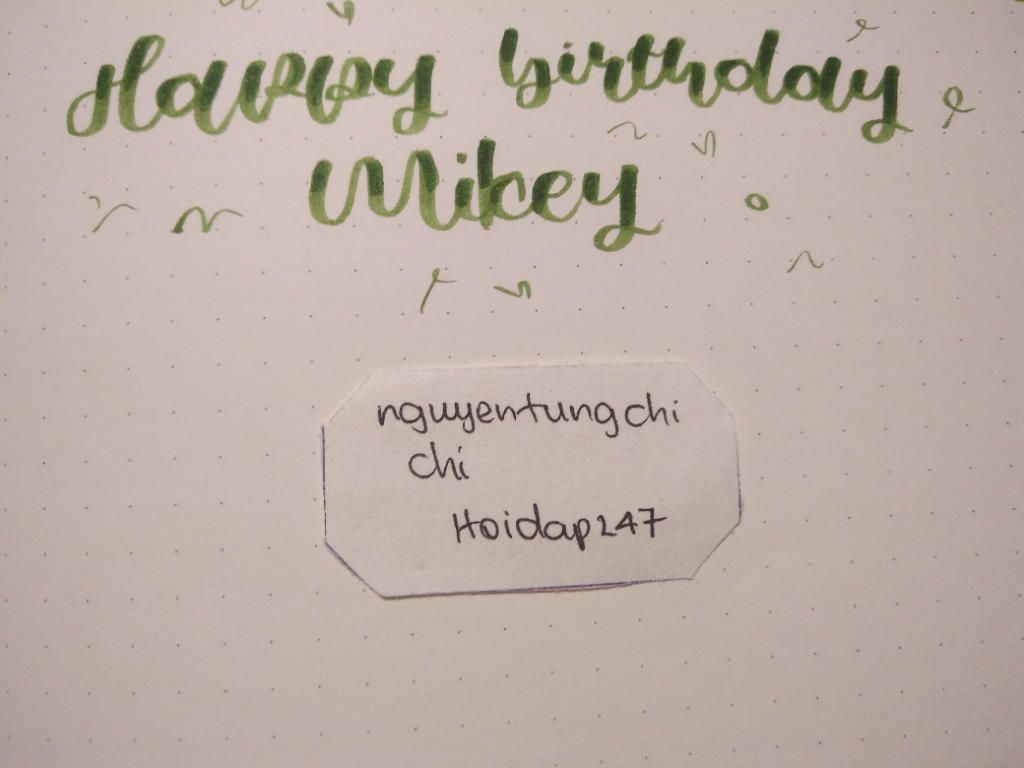 Happy birthday
Mikey
nguyentungchi
chi
Hoidap247